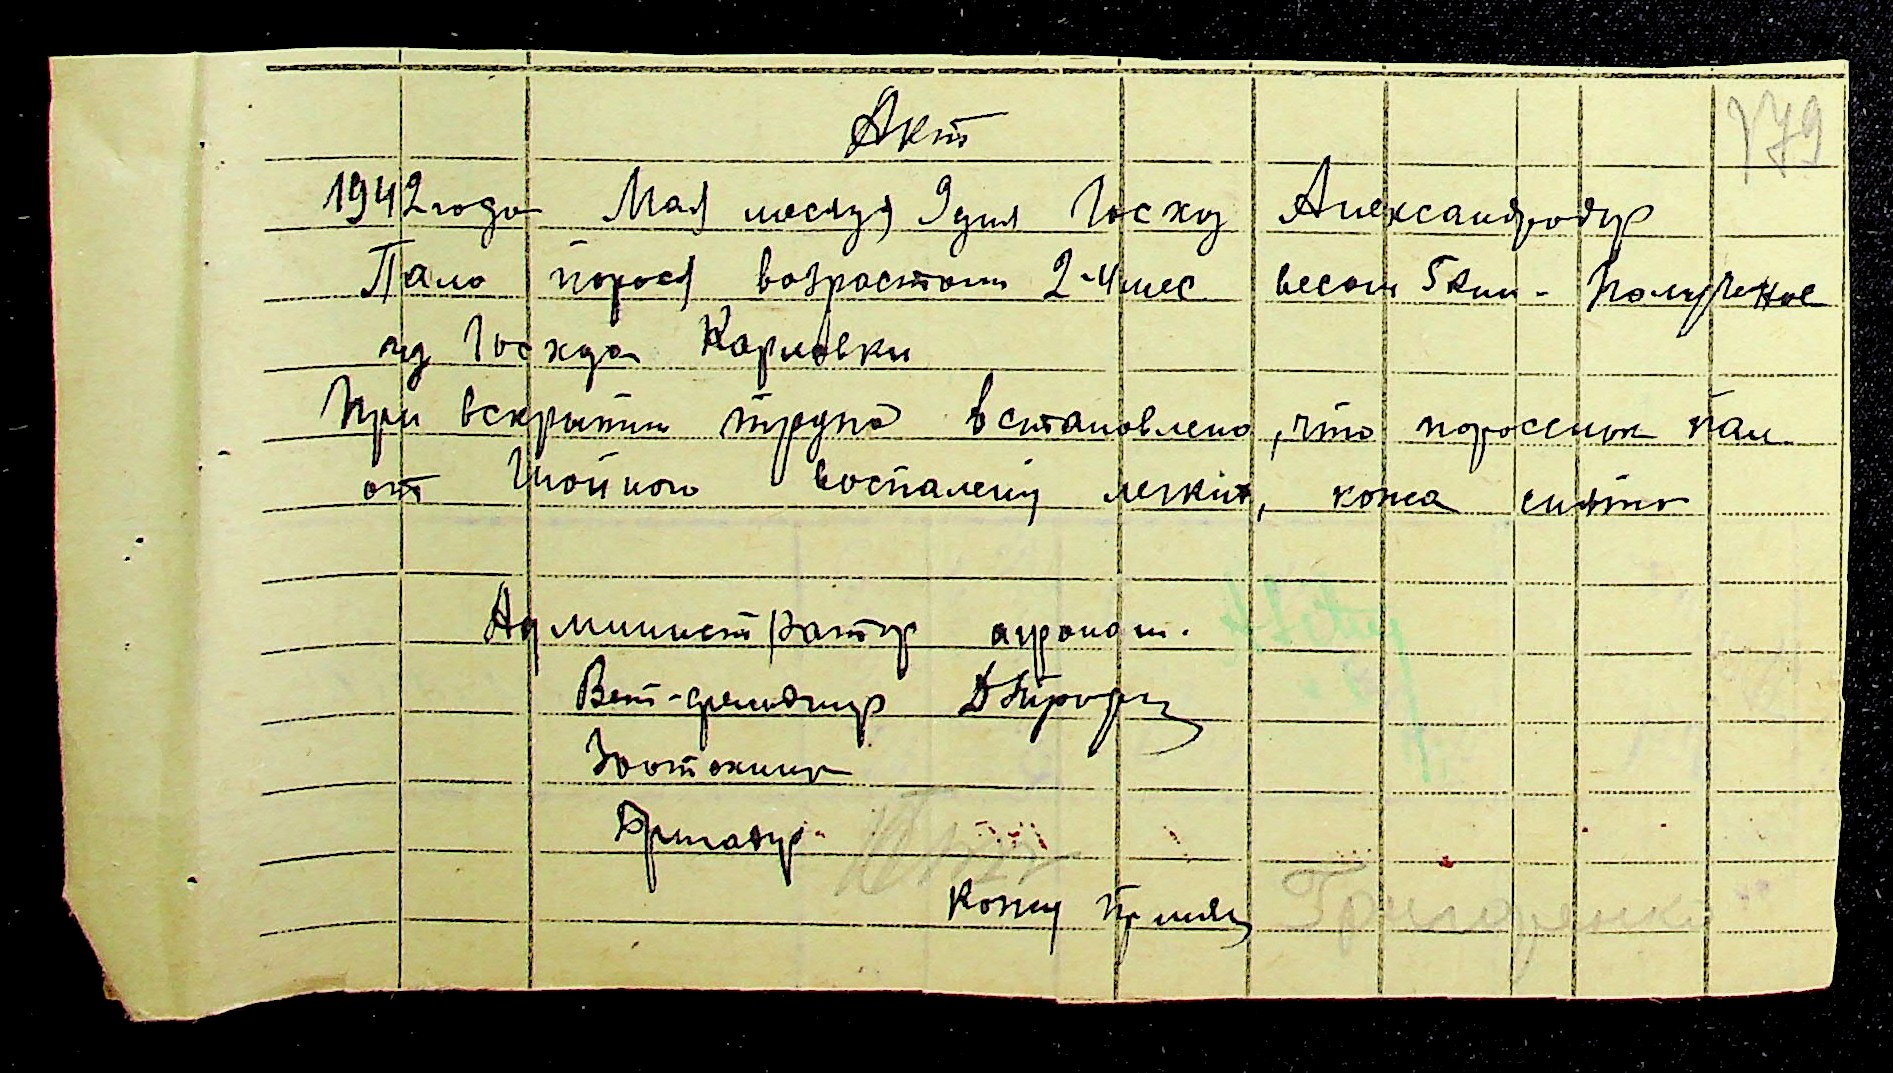 179
Акт
1942 года Мая месяця 9 дня Госхоз Александродар
Пало порося возрастом 2-4 мес весом 5 кил - Полученое
из Госхоза Карловки
При вскрытии трупа встановлено, что поросенок пал
от Гнойного воспаления легких, кожа снята
Администратор агроном.
Вет-фельдшер
Зоотехник
Бригадир
Кожу принял Григоренко